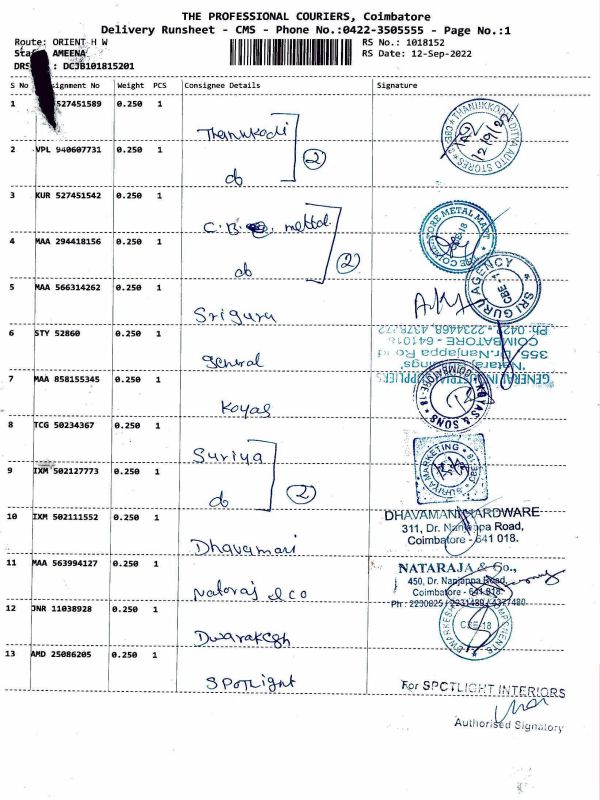 THE PROFESSIONAL COURIERS, Coimbatore
Delivery Runsheet - CMS - Phone No.:0422-3505555 - Page No.:1
Route: ORIENT H W
RS No.: 1018152
AMEENA
RS Date: 12-Sep-2022
DRS : DCJB101815201
S No ignment No Weight PCS Consignee Details Signature
1 527451589 0.250 1 Thanukodi
THANUKKODI ADITYA AUTO STORES CBE
12/9/22
2 VPL 940607731 0.250 1 do 2
3 KUR 527451542 0.250 1 C.B. mettal
THE COIMBATORE METAL MART
4 MAA 294418156 0.250 1 do 2
5 MAA 566314262 0.250 1 Sriguru
SRI GURU AGENCY CBE
6 STY 52860 0.250 1 General
GENERAL INDUSTRIAL SUPPLIERS
'Nataraj
355, Dr.Nanjappa Road
COIMBATORE - 641018
Ph: 0422 - 2234468
7 MAA 858155345 0.250 1 Koyas
KOYAS & SONS COIMBATORE-18
8 TCG 50234367 0.250 1 Suriya
SURIYA MARKETING CBE
9 IXM 502127773 0.250 1 do 2
10 IXM 502111552 0.250 1 Dhavamari
DHAVAMANI HARDWARE
311, Dr. Nanjappa Road,
Coimbatore - 641 018.
11 MAA 563994127 0.250 1 Nataraj & co
NATARAJA & Co.,
450, Dr. Nanjappa Road,
Coimbatore - 641 018
Ph : 2230025 / 2231489 / 4377480
12 JNR 11038928 0.250 1 Dwarakesh
DWARKESH COMPONENTS
CBE-18
13 AMD 25086205 0.250 1 SPOTLight
For SPOTLIGHT INTERIORS
Authorised Signatory